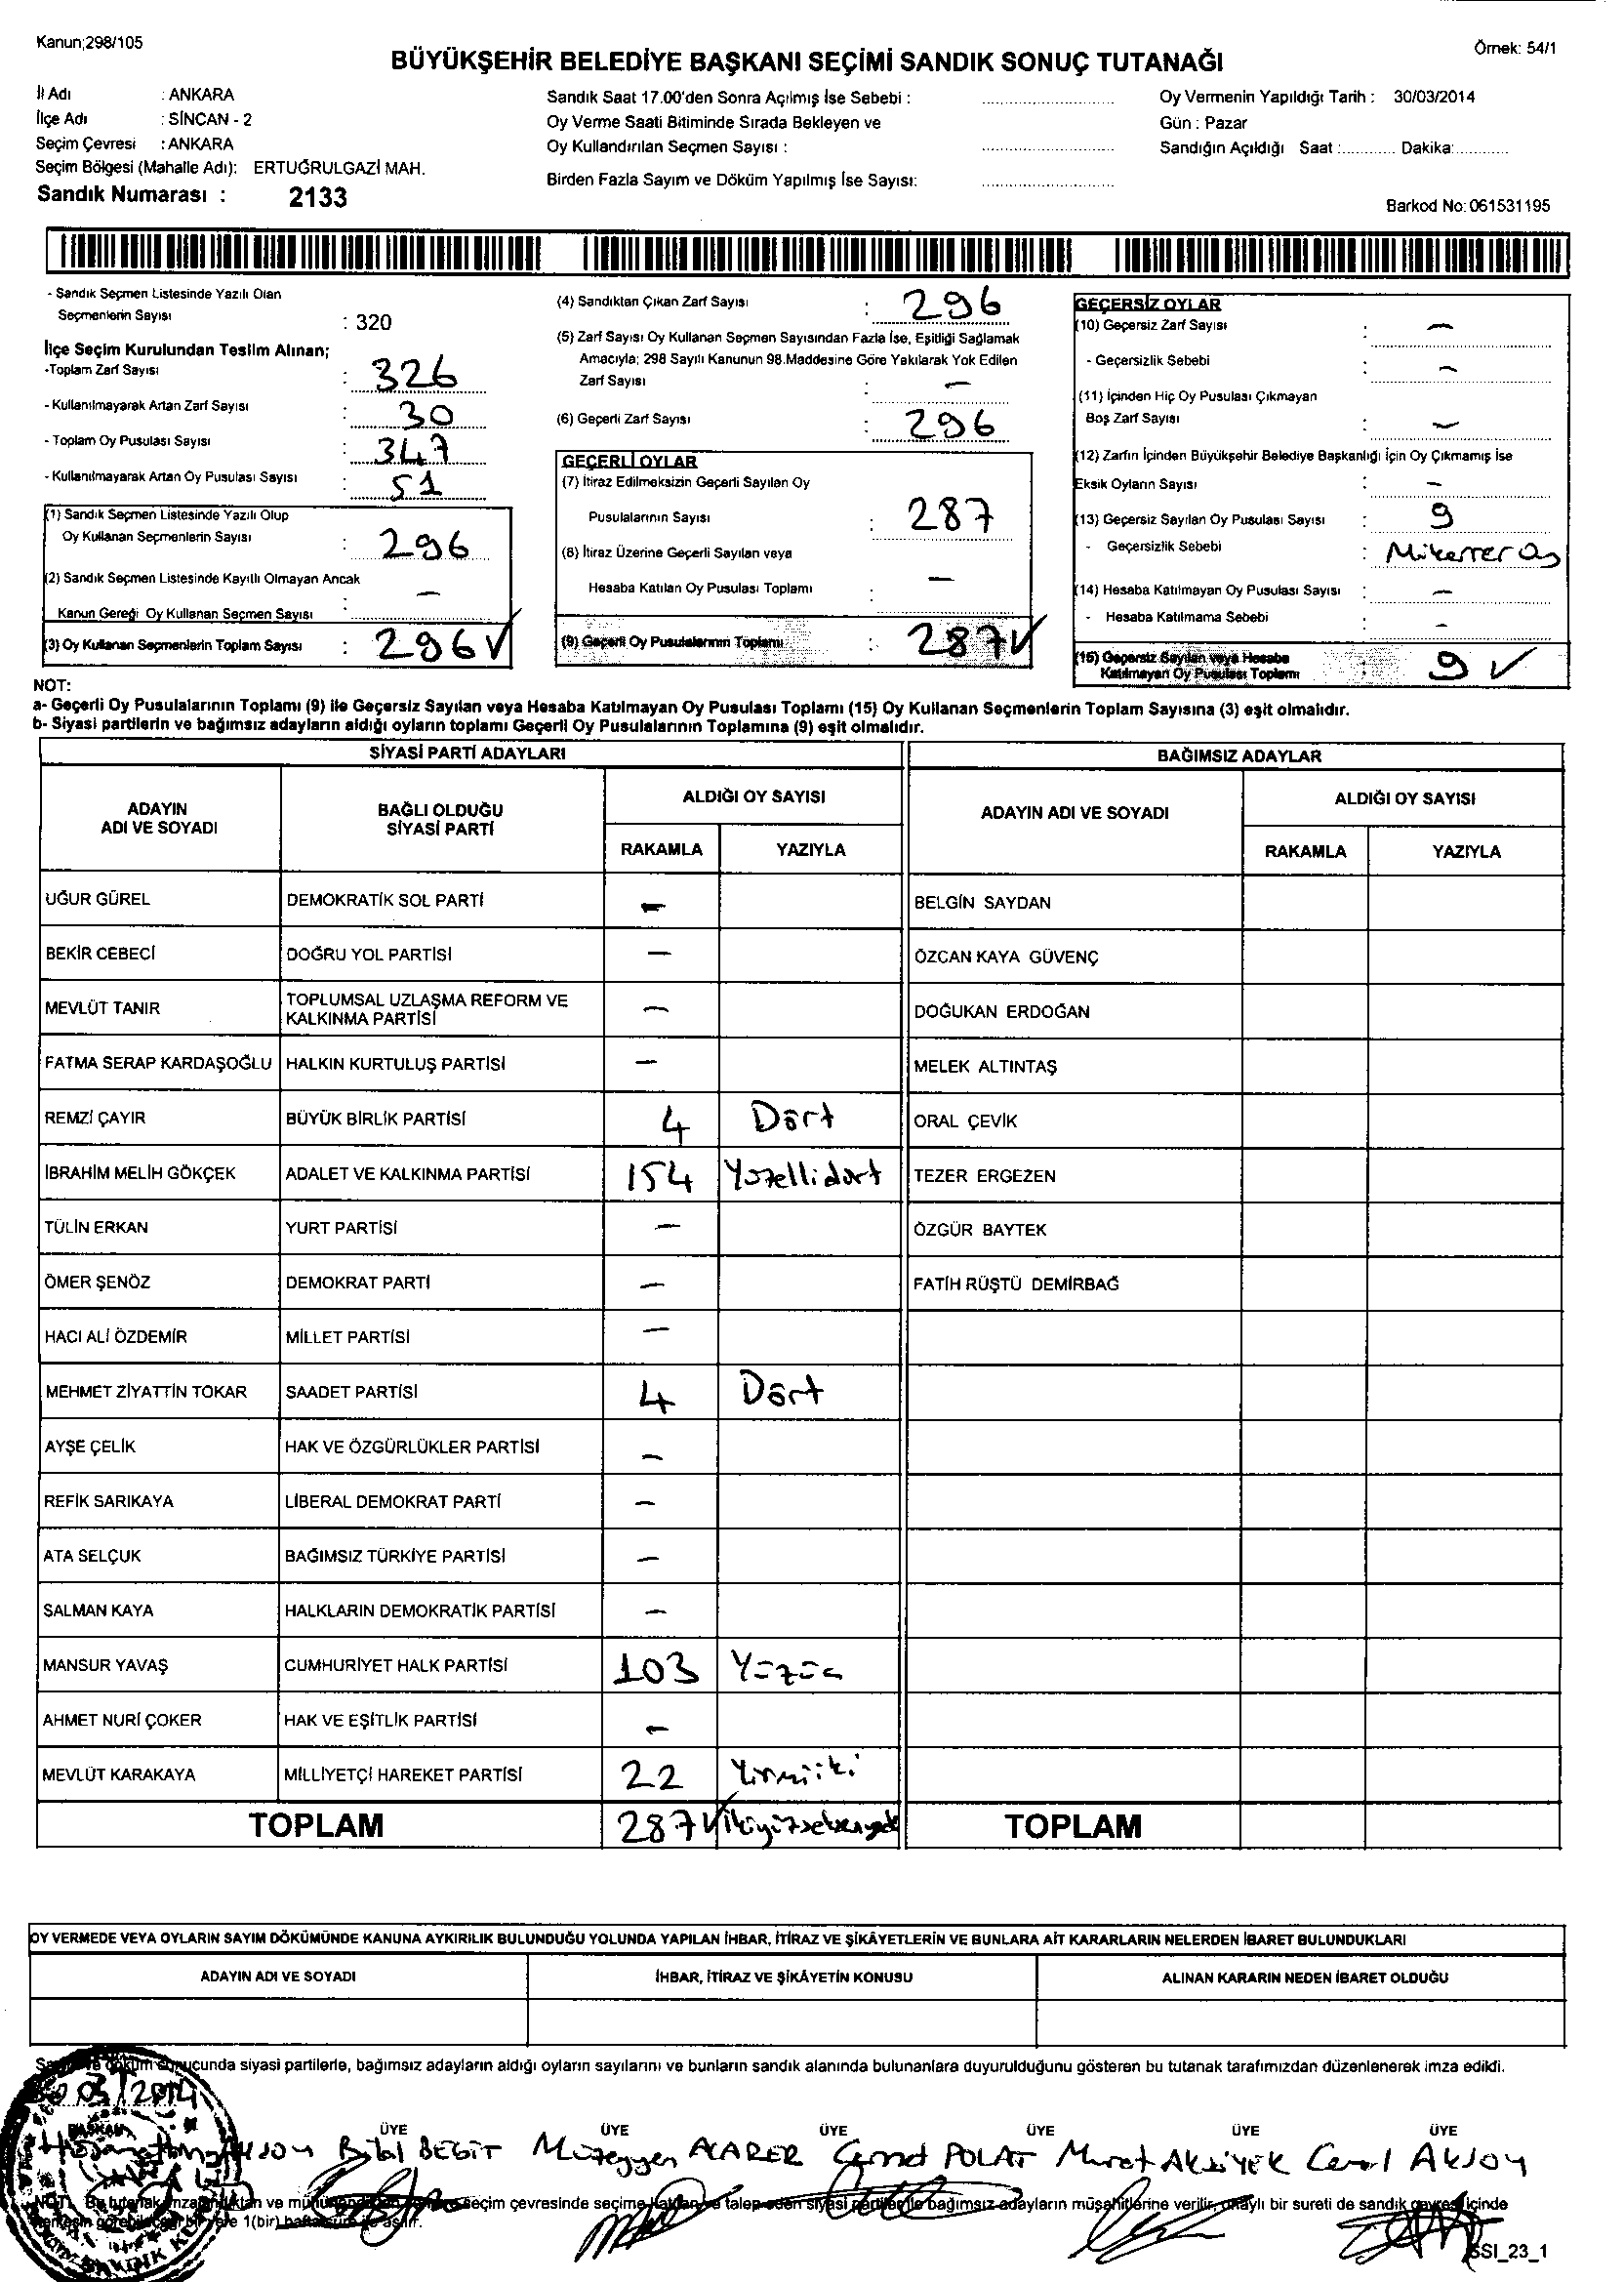 Kanun;298/105
Örnek: 54/1
BÜYÜKŞEHİR BELEDİYE BAŞKANI SEÇİMİ SANDIK SONUÇ TUTANAĞI
İl Adı : ANKARA
İlçe Adı : SİNCAN - 2
Seçim Çevresi : ANKARA
Seçim Bölgesi (Mahalle Adı): ERTUĞRULGAZİ MAH.
Sandık Numarası : 2133
Sandık Saat 17.00'den Sonra Açılmış İse Sebebi :
Oy Verme Saati Bitiminde Sırada Bekleyen ve
Oy Kullandırılan Seçmen Sayısı :
Birden Fazla Sayım ve Döküm Yapılmış İse Sayısı:
Oy Vermenin Yapıldığı Tarih : 30/03/2014
Gün : Pazar
Sandığın Açıldığı Saat :............ Dakika:............
Barkod No: 061531195
- Sandık Seçmen Listesinde Yazılı Olan
Seçmenlerin Sayısı : 320
İlçe Seçim Kurulundan Teslim Alınan;
-Toplam Zarf Sayısı : 326
- Kullanılmayarak Artan Zarf Sayısı : 30
- Toplam Oy Pusulası Sayısı : 347
- Kullanılmayarak Artan Oy Pusulası Sayısı : 51
(1) Sandık Seçmen Listesinde Yazılı Olup
Oy Kullanan Seçmenlerin Sayısı : 296
(2) Sandık Seçmen Listesinde Kayıtlı Olmayan Ancak
Kanun Gereği Oy Kullanan Seçmen Sayısı : —
(3) Oy Kullanan Seçmenlerin Toplam Sayısı : 296 ✓
(4) Sandıktan Çıkan Zarf Sayısı : 296
(5) Zarf Sayısı Oy Kullanan Seçmen Sayısından Fazla İse, Eşitliği Sağlamak
Amacıyla; 298 Sayılı Kanunun 98.Maddesine Göre Yakılarak Yok Edilen
Zarf Sayısı : —
(6) Geçerli Zarf Sayısı : 296
GEÇERLİ OYLAR
(7) İtiraz Edilmeksizin Geçerli Sayılan Oy
Pusulalarının Sayısı : 287
(8) İtiraz Üzerine Geçerli Sayılan veya
Hesaba Katılan Oy Pusulası Toplamı : —
(9) Geçerli Oy Pusulalarının Toplamı : 287 ✓
GEÇERSİZ OYLAR
(10) Geçersiz Zarf Sayısı : —
- Geçersizlik Sebebi : —
(11) İçinden Hiç Oy Pusulası Çıkmayan
Boş Zarf Sayısı : —
(12) Zarfın İçinden Büyükşehir Belediye Başkanlığı İçin Oy Çıkmamış İse
Eksik Oyların Sayısı : —
(13) Geçersiz Sayılan Oy Pusulası Sayısı : 9
- Geçersizlik Sebebi : Mükerrer Oy
(14) Hesaba Katılmayan Oy Pusulası Sayısı : —
- Hesaba Katılmama Sebebi : —
(15) Geçersiz Sayılan veya Hesaba
Katılmayan Oy Pusulası Toplamı : 9 ✓
NOT:
a- Geçerli Oy Pusulalarının Toplamı (9) ile Geçersiz Sayılan veya Hesaba Katılmayan Oy Pusulası Toplamı (15) Oy Kullanan Seçmenlerin Toplam Sayısına (3) eşit olmalıdır.
b- Siyasi partilerin ve bağımsız adayların aldığı oyların toplamı Geçerli Oy Pusulalarının Toplamına (9) eşit olmalıdır.
SİYASİ PARTİ ADAYLARI
BAĞIMSIZ ADAYLAR
ADAYIN
ADI VE SOYADI
BAĞLI OLDUĞU
SİYASİ PARTİ
ALDIĞI OY SAYISI
RAKAMLA YAZIYLA
ADAYIN ADI VE SOYADI
ALDIĞI OY SAYISI
RAKAMLA YAZIYLA
UĞUR GÜREL DEMOKRATİK SOL PARTİ — BELGİN SAYDAN
BEKİR CEBECİ DOĞRU YOL PARTİSİ — ÖZCAN KAYA GÜVENÇ
MEVLÜT TANIR TOPLUMSAL UZLAŞMA REFORM VE
KALKINMA PARTİSİ — DOĞUKAN ERDOĞAN
FATMA SERAP KARDAŞOĞLU HALKIN KURTULUŞ PARTİSİ — MELEK ALTINTAŞ
REMZİ ÇAYIR BÜYÜK BİRLİK PARTİSİ 4 Dört ORAL ÇEVİK
İBRAHİM MELİH GÖKÇEK ADALET VE KALKINMA PARTİSİ 154 Yüzellidört TEZER ERGEZEN
TÜLİN ERKAN YURT PARTİSİ — ÖZGÜR BAYTEK
ÖMER ŞENÖZ DEMOKRAT PARTİ — FATİH RÜŞTÜ DEMİRBAĞ
HACI ALİ ÖZDEMİR MİLLET PARTİSİ —
MEHMET ZİYATTİN TOKAR SAADET PARTİSİ 4 Dört
AYŞE ÇELİK HAK VE ÖZGÜRLÜKLER PARTİSİ —
REFİK SARIKAYA LİBERAL DEMOKRAT PARTİ —
ATA SELÇUK BAĞIMSIZ TÜRKİYE PARTİSİ —
SALMAN KAYA HALKLARIN DEMOKRATİK PARTİSİ —
MANSUR YAVAŞ CUMHURİYET HALK PARTİSİ 103 Yüzüç
AHMET NURİ ÇOKER HAK VE EŞİTLİK PARTİSİ —
MEVLÜT KARAKAYA MİLLİYETÇİ HAREKET PARTİSİ 22 Yirmiiki
TOPLAM 287 ✓ ikiyüzseksenyedi TOPLAM
OY VERMEDE VEYA OYLARIN SAYIM DÖKÜMÜNDE KANUNA AYKIRILIK BULUNDUĞU YOLUNDA YAPILAN İHBAR, İTİRAZ VE ŞİKÂYETLERİN VE BUNLARA AİT KARARLARIN NELERDEN İBARET BULUNDUKLARI
ADAYIN ADI VE SOYADI İHBAR, İTİRAZ VE ŞİKÂYETİN KONUSU ALINAN KARARIN NEDEN İBARET OLDUĞU
döküm sonucunda siyasi partilerle, bağımsız adayların aldığı oyların sayılarını ve bunların sandık alanında bulunanlara duyurulduğunu gösteren bu tutanak tarafımızdan düzenlenerek imza edildi.
30/03/2014
BAŞKAN ÜYE ÜYE ÜYE ÜYE ÜYE ÜYE
AKSOY Bilal BEGİT Müzeyyen ACARER Cemal POLAT Murat AKSİYEK Cemal AKSOY
NOT: Bu tutanak seçim çevresinde seçime katılan ve talep eden siyasi partiler ile bağımsız adayların müşahitlerine verilir, onaylı bir sureti de sandık çevresi içinde
herkesin görebileceği bir yere 1(bir) hafta süre ile asılır.
SANDIK
SSI_23_1